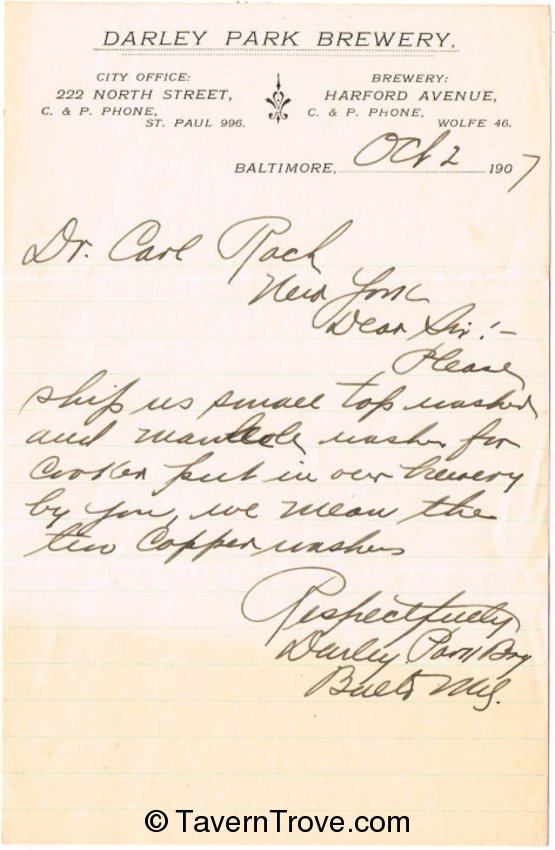 DARLEY PARK BREWERY.
CITY OFFICE:
222 NORTH STREET,
C. & P. PHONE,
ST. PAUL 996.
BREWERY:
HARFORD AVENUE,
C. & P. PHONE,
WOLFE 46.
BALTIMORE, Oct 2 1907
Dr. Carl Rach
New York
Dear Sir!-
Please
ship us small top washer
and manhole washer for
Cooker put in our brewery
by you, we mean the
two Copper washers
Respectfully
Darley Park Bry
Balto Md.
© TavernTrove.com